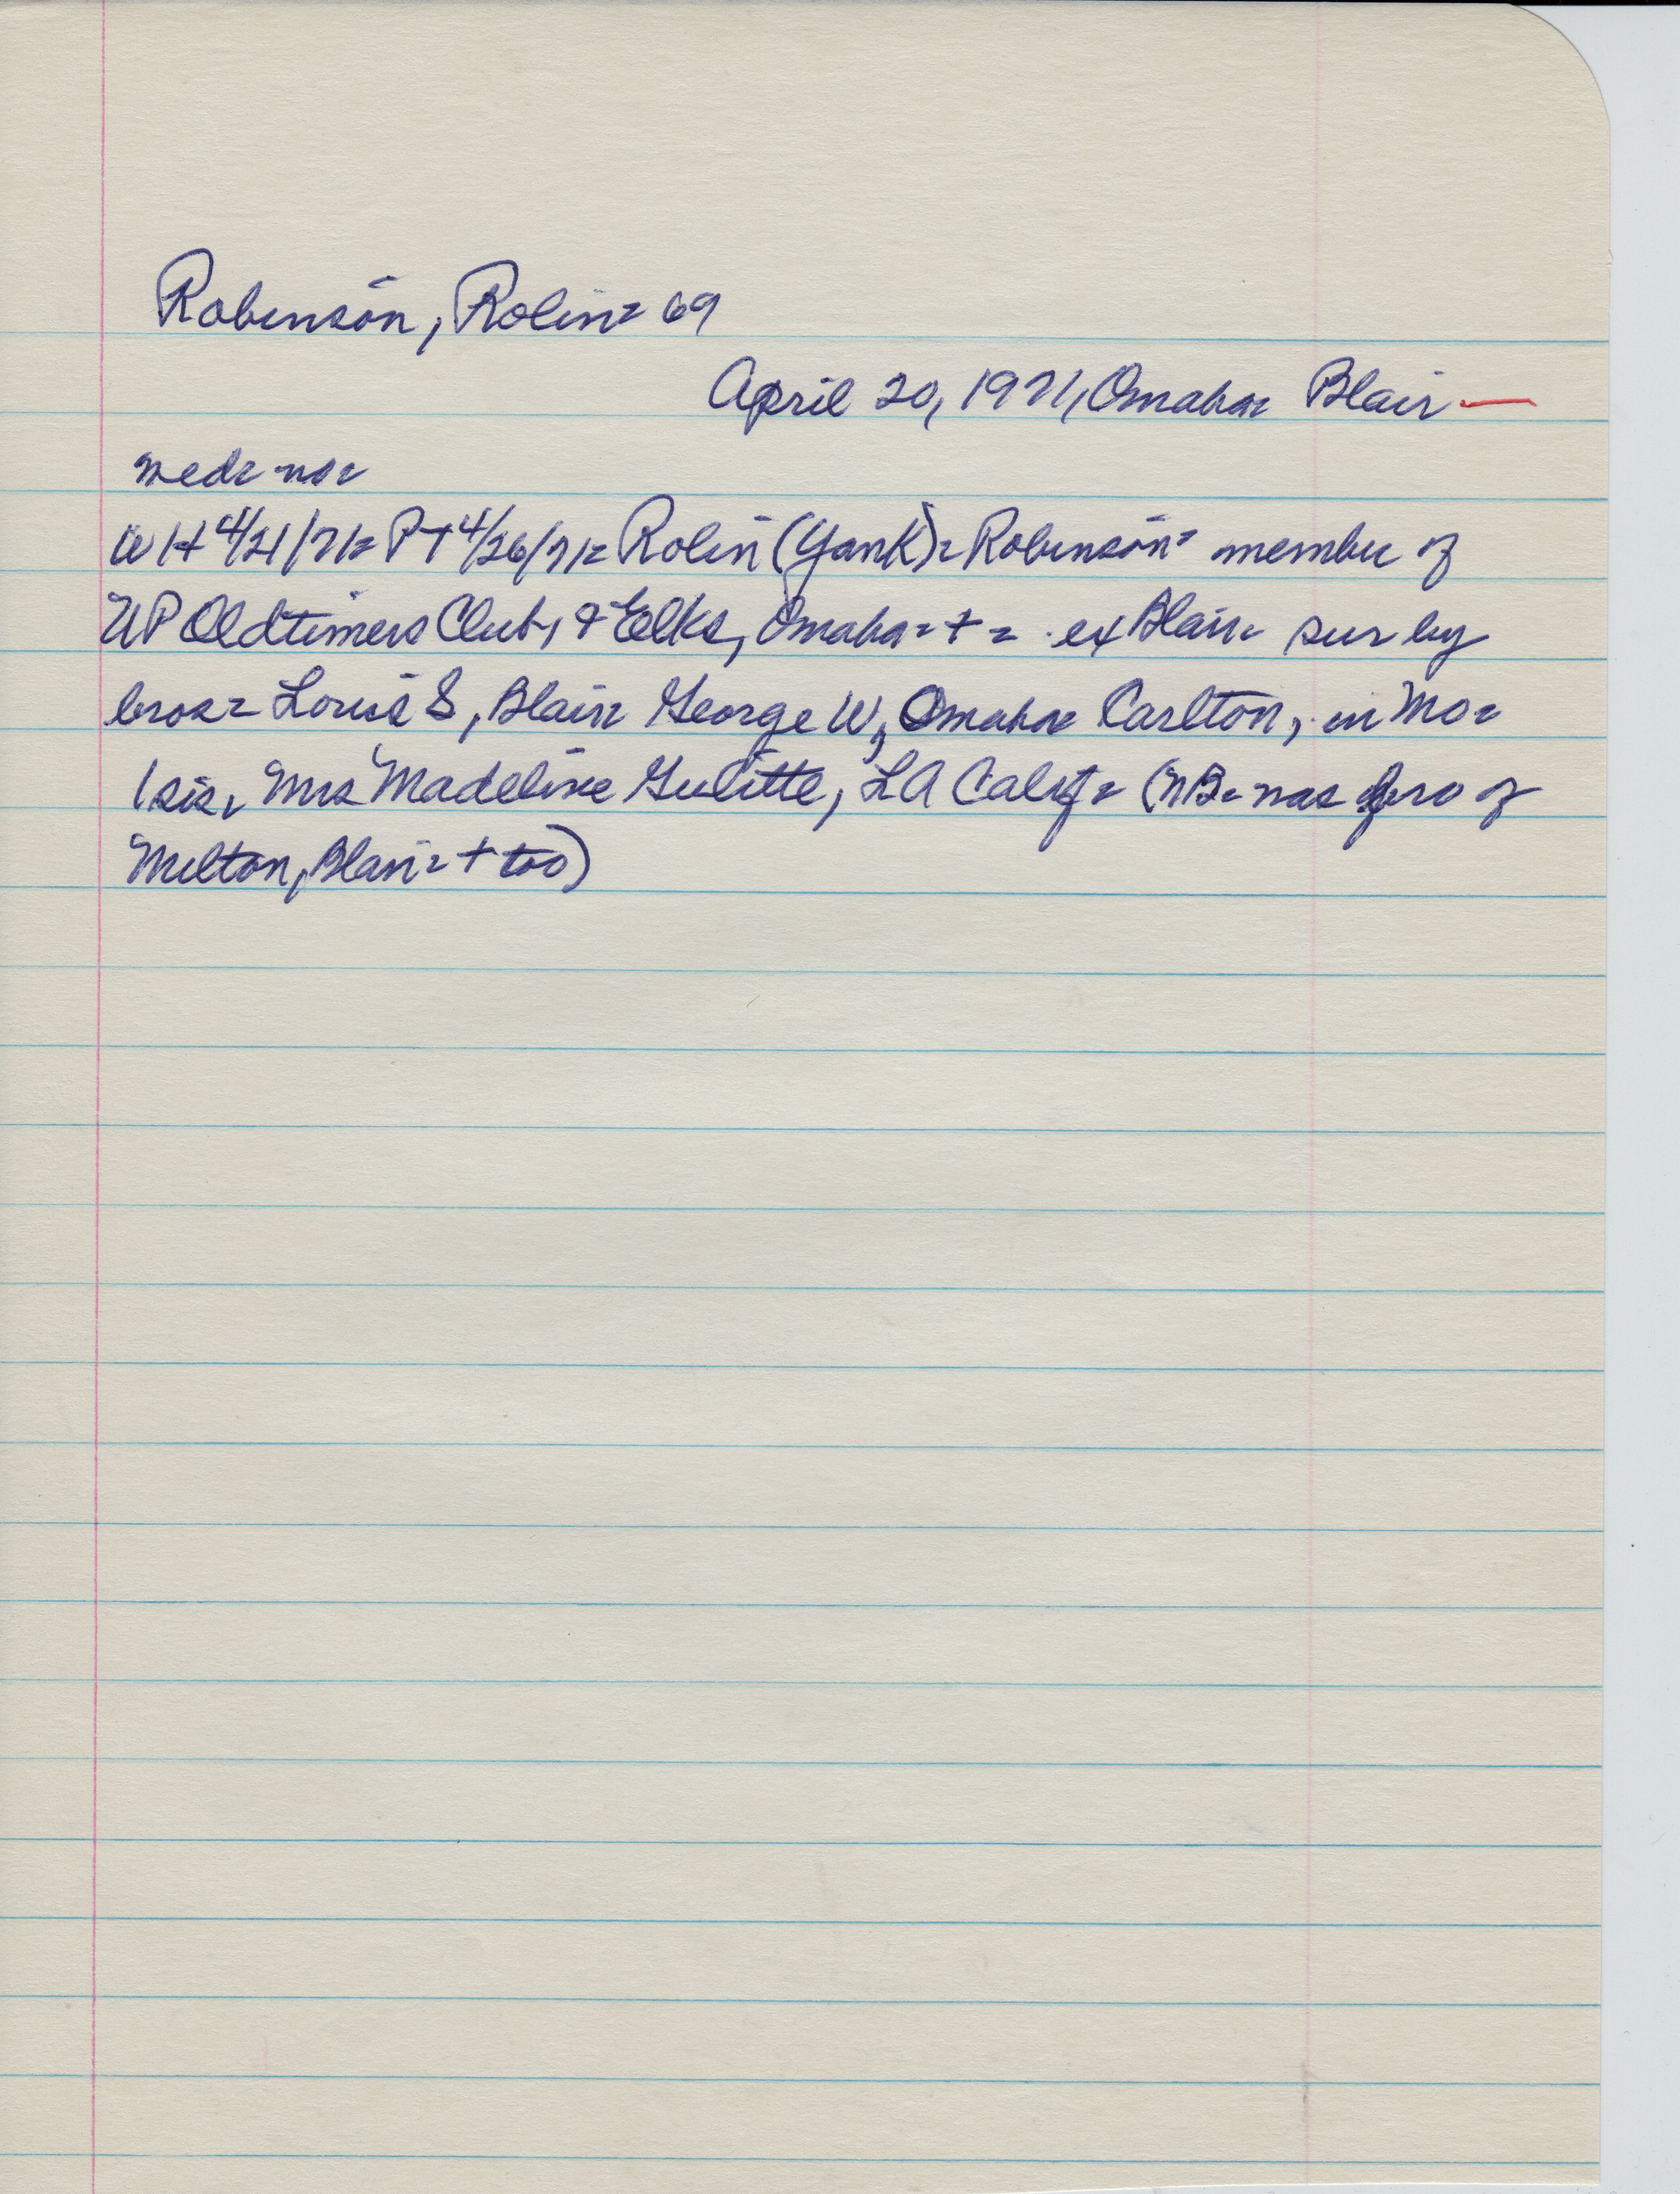 Robinson, Rolin= 69
April 20, 1971, Omaha= Blair —
Wed= no=
WH 4/21/71= PT 4/26/71= Rolin (Yank)= Robinson= member of
UP Oldtimers Club, & Elks, Omaha= + = ex Blair= sur by
bros= Louis S, Blair= George W, Omaha= Carlton, in Mo=
1 sis, Mrs Madeline Gulitte, LA Calif= (NB= was bro of
Milton, Blair= + too)